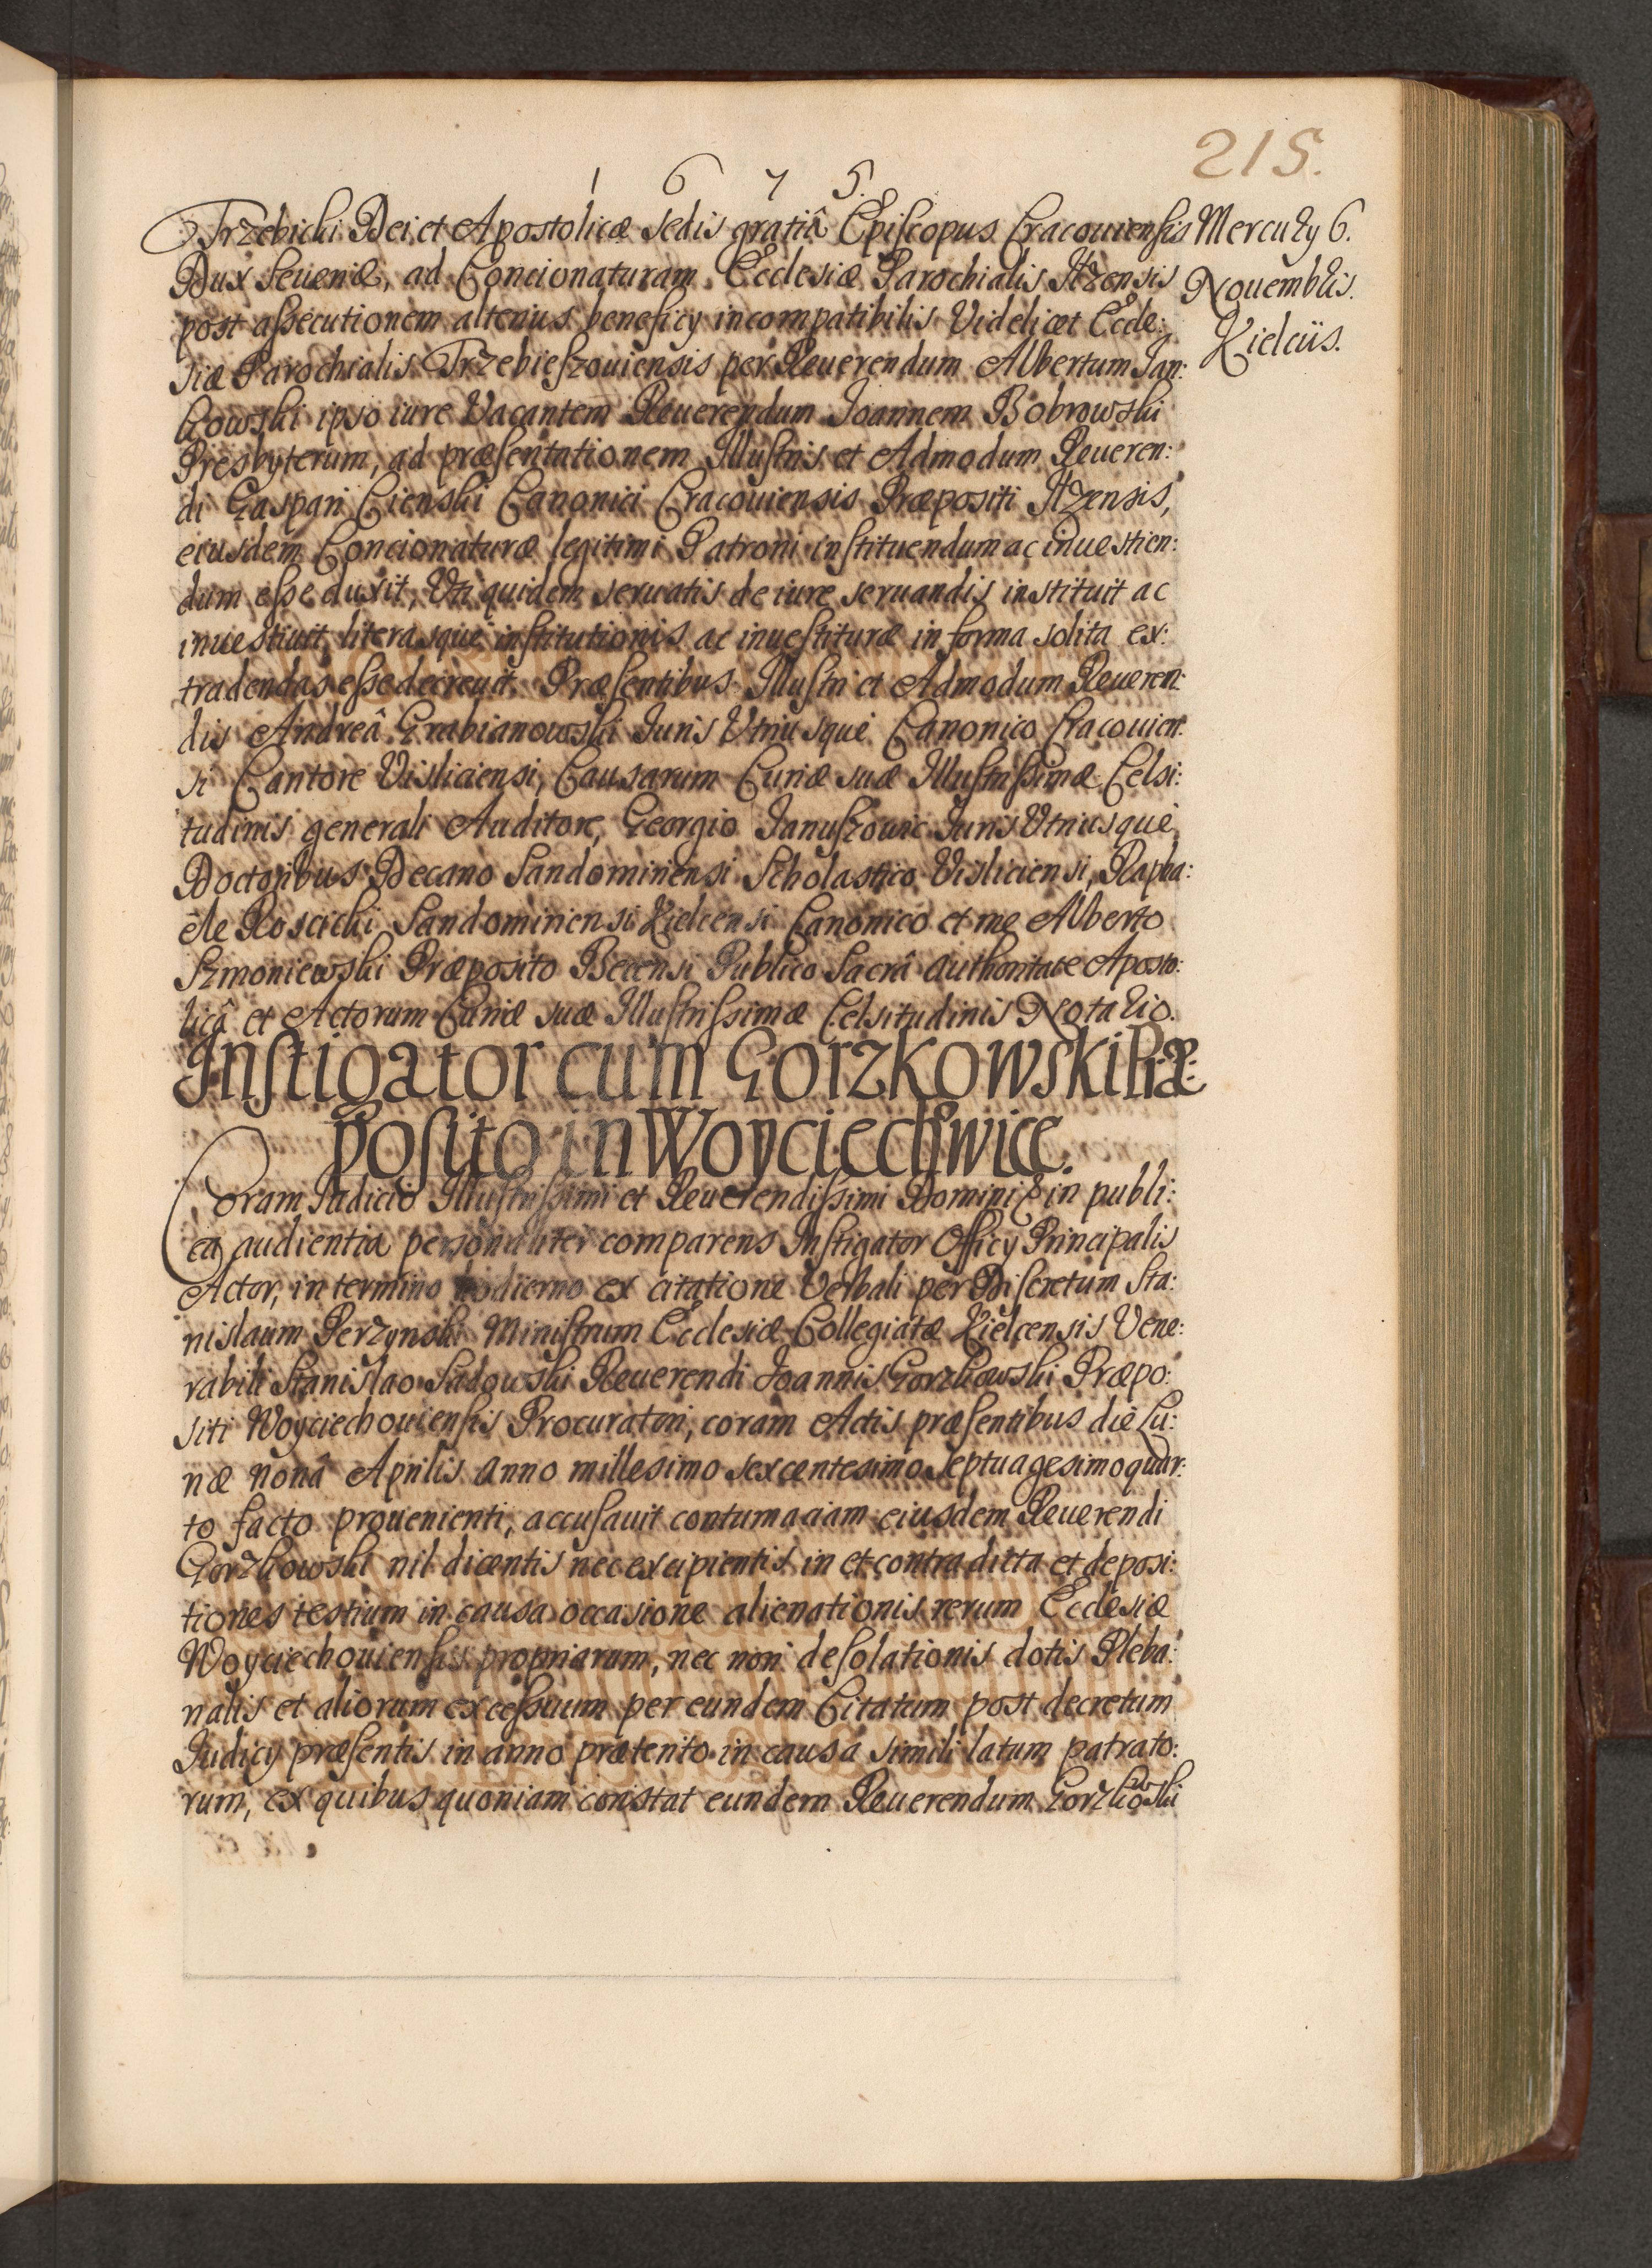 215.
1 6 7 5.
Trzebicki Dei et Apostolicæ Sedis gratiâ Episcopus Cracouiensis
Dux Seueriæ, ad Concionaturam Ecclesiæ Parochialis Ilzensis
post assecutionem alterius beneficy incompatibilis Videlicet Eccle:
siæ Parochialis Trzebieszouiensis per Reuerendum Albertum Jan:
kowski ipso iure Vacantem Reuerendum Joannem Bobrowski
Presbyterum, ad præsentationem Illustris et Admodum Reueren:
di Gaspari Cienski Canonici Cracouiensis Præpositi Ilzensis,
eiusdem Concionaturæ legitimi Patroni instituendum ac inuestien:
dum esse duxit, Uti quidem seruatis de iure seruandis instituit ac
inuestiuit, literasque institutionis ac inuestituræ in forma solita ex:
tradendas esse decreuit. Præsentibus Illustri et Admodum Reueren:
dis Andreâ Grabianowski Juris Utriusque Canonico Cracouien:
si Cantore Visliciensi, Causarum Curiæ suæ Illustrissimæ Celsi:
tudinis generali Auditore, Georgio Januszowic Juris Utriusque
Doctoribus Decano Sandomiriensi Scholastico Visliciensi, Rapha:
ële Roscicki Sandomiriensi Kielcensi Canonico et me Alberto
Szmoniewski Præposito Becensi Publico Sacrâ Authoritate Aposto:
licâ et Actorum Curiæ suæ Illustrissimæ Celsitudinis Notario.
Mercurÿ 6.
Nouembris.
Kielcijs.
Instigator cum Gorzkowski Præ:
posito in Woyciechowice.
Coram Iudicio Illustrissimi et Reuerendissimi Domini & in publi:
ca audientia personaliter comparens Instigator Officÿ Principalis
Actor, in termino hodierno ex citatione Verbali per Discretum Sta:
nislaum Perzynski Ministrum Ecclesiæ Collegiatæ Kielcensis Vene:
rabili Stanislao Sadowski Reuerendi Joannis Gorzkowski Præpo:
siti Woyciechouiensis Procuratori, coram Actis præsentibus die Lu:
næ nonâ Aprilis Anno millesimo sexcentesimo Septuagesimo quar:
to facto prouenienti, accusauit contumaciam eiusdem Reuerendi
Gorzkowski nil dicentis nec excipientis in et contra dicta et deposi:
tiones testium in causa occasione alienationis rerum Ecclesiæ
Woyciechouiensis propriarum, nec non desolationis dotis Pleba:
nalis et aliorum excessuum per eundem Citatum post decretum
Iudicÿ præsentis in anno præterito in causa simili latum patrato:
rum, ex quibus quoniam constat eundem Reuerendum Gorzkowski